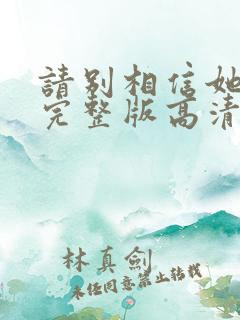 請别相信她
完整版高清
林真劍
未经同意禁止转载